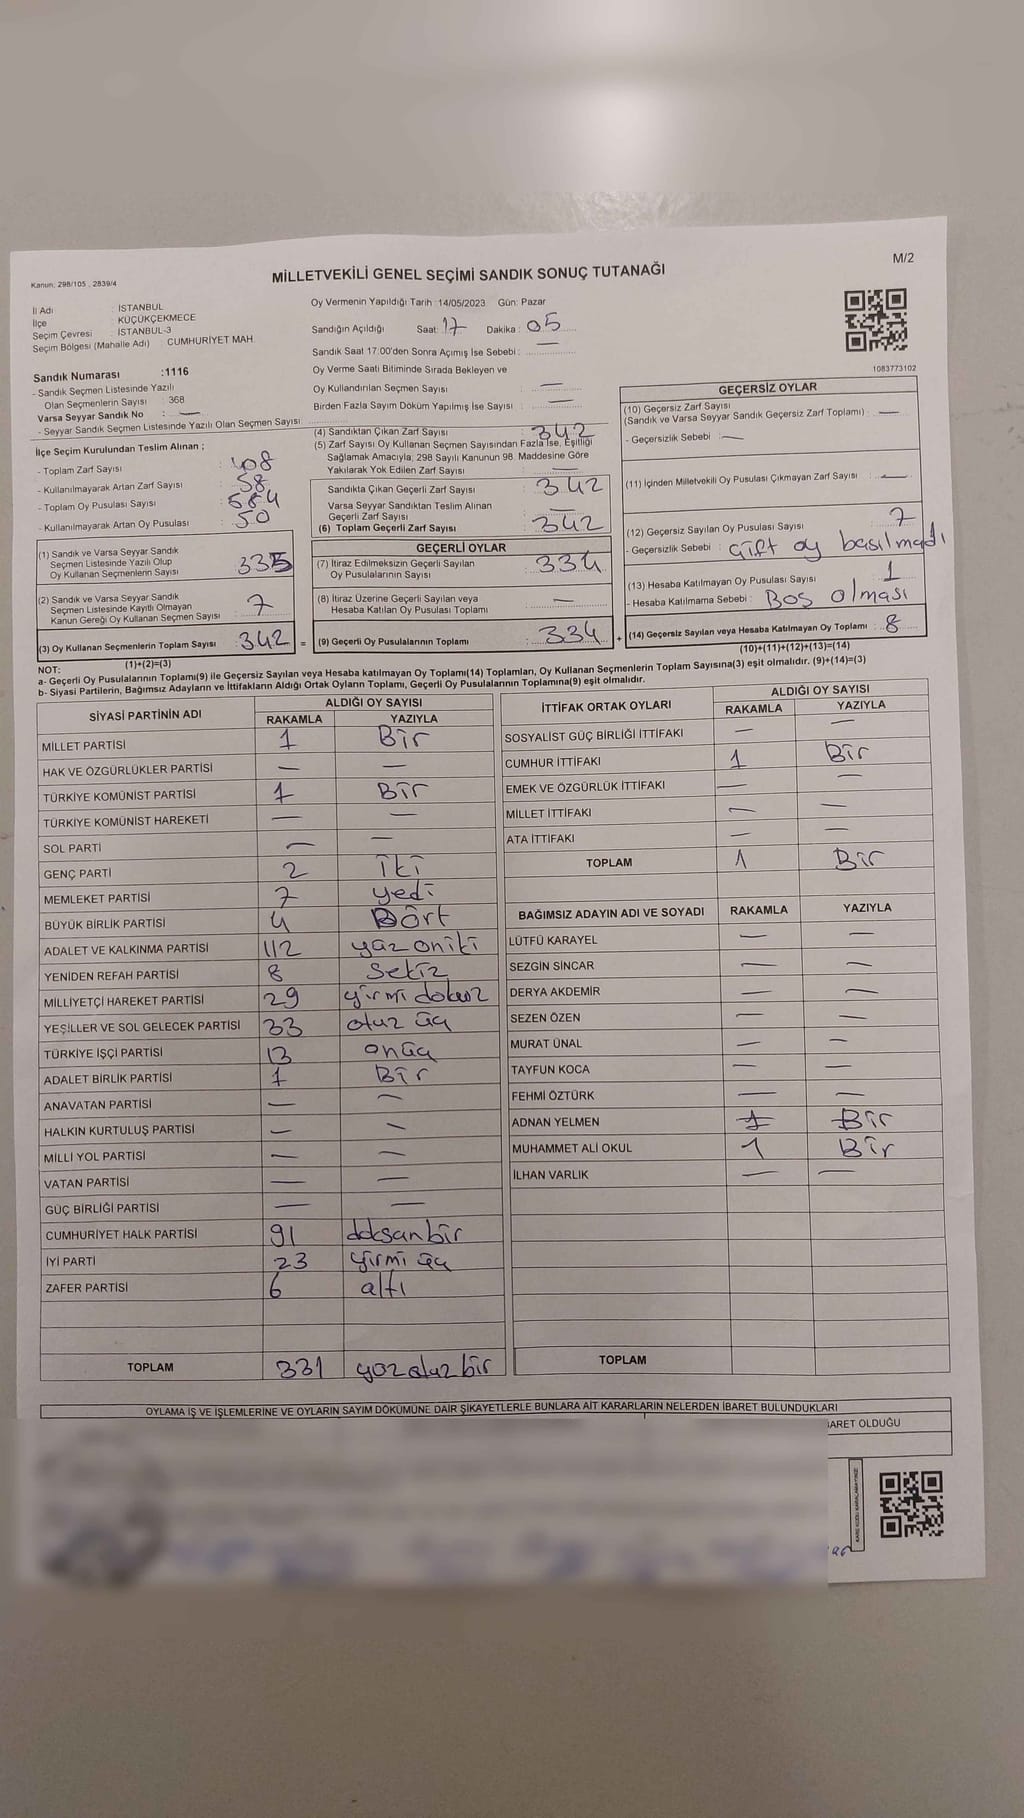 M/2
Kanun: 298/105 , 2839/4
MİLLETVEKİLİ GENEL SEÇİMİ SANDIK SONUÇ TUTANAĞI
İl Adı : İSTANBUL
İlçe : KÜÇÜKÇEKMECE
Seçim Çevresi : İSTANBUL-3
Seçim Bölgesi (Mahalle Adı) : CUMHURİYET MAH.
Sandık Numarası :1116
- Sandık Seçmen Listesinde Yazılı
Olan Seçmenlerin Sayısı : 368
Varsa Seyyar Sandık No : —
- Seyyar Sandık Seçmen Listesinde Yazılı Olan Seçmen Sayısı :
İlçe Seçim Kurulundan Teslim Alınan ;
- Toplam Zarf Sayısı : 408
- Kullanılmayarak Artan Zarf Sayısı : 58
- Toplam Oy Pusulası Sayısı : 584
- Kullanılmayarak Artan Oy Pusulası : 50
(1) Sandık ve Varsa Seyyar Sandık
Seçmen Listesinde Yazılı Olup
Oy Kullanan Seçmenlerin Sayısı 335
(2) Sandık ve Varsa Seyyar Sandık
Seçmen Listesinde Kayıtlı Olmayan
Kanun Gereği Oy Kullanan Seçmen Sayısı 7
(3) Oy Kullanan Seçmenlerin Toplam Sayısı 342 =
(1)+(2)=(3)
Oy Vermenin Yapıldığı Tarih :14/05/2023 Gün: Pazar
Sandığın Açıldığı Saat: 17 Dakika : 05
Sandık Saat 17:00'den Sonra Açımış İse Sebebi : —
Oy Verme Saati Bitiminde Sırada Bekleyen ve
Oy Kullandırılan Seçmen Sayısı : —
Birden Fazla Sayım Döküm Yapılmış İse Sayısı : —
(4) Sandıktan Çıkan Zarf Sayısı : 342
(5) Zarf Sayısı Oy Kullanan Seçmen Sayısından Fazla İse, Eşitliği
Sağlamak Amacıyla, 298 Sayılı Kanunun 98. Maddesine Göre
Yakılarak Yok Edilen Zarf Sayısı : —
Sandıkta Çıkan Geçerli Zarf Sayısı : 342
Varsa Seyyar Sandıktan Teslim Alınan
Geçerli Zarf Sayısı :
(6) Toplam Geçerli Zarf Sayısı : 342
GEÇERLİ OYLAR
(7) İtiraz Edilmeksizin Geçerli Sayılan
Oy Pusulalarının Sayısı : 334
(8) İtiraz Üzerine Geçerli Sayılan veya
Hesaba Katılan Oy Pusulası Toplamı : —
(9) Geçerli Oy Pusulalarının Toplamı : 334 +
1083773102
GEÇERSİZ OYLAR
(10) Geçersiz Zarf Sayısı
(Sandık ve Varsa Seyyar Sandık Geçersiz Zarf Toplamı) : —
- Geçersizlik Sebebi : —
(11) İçinden Milletvekili Oy Pusulası Çıkmayan Zarf Sayısı : —
(12) Geçersiz Sayılan Oy Pusulası Sayısı : 7
- Geçersizlik Sebebi : Çift oy basılmadı
(13) Hesaba Katılmayan Oy Pusulası Sayısı : 1
- Hesaba Katılmama Sebebi : Boş olması
(14) Geçersiz Sayılan veya Hesaba Katılmayan Oy Toplamı : 8
(10)+(11)+(12)+(13)=(14)
NOT:
a- Geçerli Oy Pusulalarının Toplamı(9) ile Geçersiz Sayılan veya Hesaba katılmayan Oy Toplamı(14) Toplamları, Oy Kullanan Seçmenlerin Toplam Sayısına(3) eşit olmalıdır. (9)+(14)=(3)
b- Siyasi Partilerin, Bağımsız Adayların ve İttifakların Aldığı Ortak Oyların Toplamı, Geçerli Oy Pusulalarının Toplamına(9) eşit olmalıdır.
SİYASİ PARTİNİN ADI ALDIĞI OY SAYISI
RAKAMLA YAZIYLA
MİLLET PARTİSİ 1 Bir
HAK VE ÖZGÜRLÜKLER PARTİSİ — —
TÜRKİYE KOMÜNİST PARTİSİ 1 Bir
TÜRKİYE KOMÜNİST HAREKETİ — —
SOL PARTİ — —
GENÇ PARTİ 2 İki
MEMLEKET PARTİSİ 7 yedi
BÜYÜK BİRLİK PARTİSİ 4 Dört
ADALET VE KALKINMA PARTİSİ 112 yüz oniki
YENİDEN REFAH PARTİSİ 8 Sekiz
MİLLİYETÇİ HAREKET PARTİSİ 29 yirmi dokuz
YEŞİLLER VE SOL GELECEK PARTİSİ 33 otuz üç
TÜRKİYE İŞÇİ PARTİSİ 13 onüç
ADALET BİRLİK PARTİSİ 1 Bir
ANAVATAN PARTİSİ — —
HALKIN KURTULUŞ PARTİSİ — —
MİLLİ YOL PARTİSİ — —
VATAN PARTİSİ — —
GÜÇ BİRLİĞİ PARTİSİ — —
CUMHURİYET HALK PARTİSİ 91 doksan bir
İYİ PARTİ 23 yirmi üç
ZAFER PARTİSİ 6 altı
TOPLAM 331 yüz otuz bir
İTTİFAK ORTAK OYLARI ALDIĞI OY SAYISI
RAKAMLA YAZIYLA
SOSYALİST GÜÇ BİRLİĞİ İTTİFAKI — —
CUMHUR İTTİFAKI 1 Bir
EMEK VE ÖZGÜRLÜK İTTİFAKI — —
MİLLET İTTİFAKI — —
ATA İTTİFAKI — —
TOPLAM 1 Bir
BAĞIMSIZ ADAYIN ADI VE SOYADI RAKAMLA YAZIYLA
LÜTFÜ KARAYEL — —
SEZGİN SİNCAR — —
DERYA AKDEMİR — —
SEZEN ÖZEN — —
MURAT ÜNAL — —
TAYFUN KOCA — —
FEHMİ ÖZTÜRK — —
ADNAN YELMEN 1 Bir
MUHAMMET ALİ OKUL 1 Bir
İLHAN VARLIK — —
TOPLAM
OYLAMA İŞ VE İŞLEMLERİNE VE OYLARIN SAYIM DÖKÜMÜNE DAİR ŞİKAYETLERLE BUNLARA AİT KARARLARIN NELERDEN İBARET BULUNDUKLARI
İBARET OLDUĞU
KARE KODU KARALAMAYINIZ!